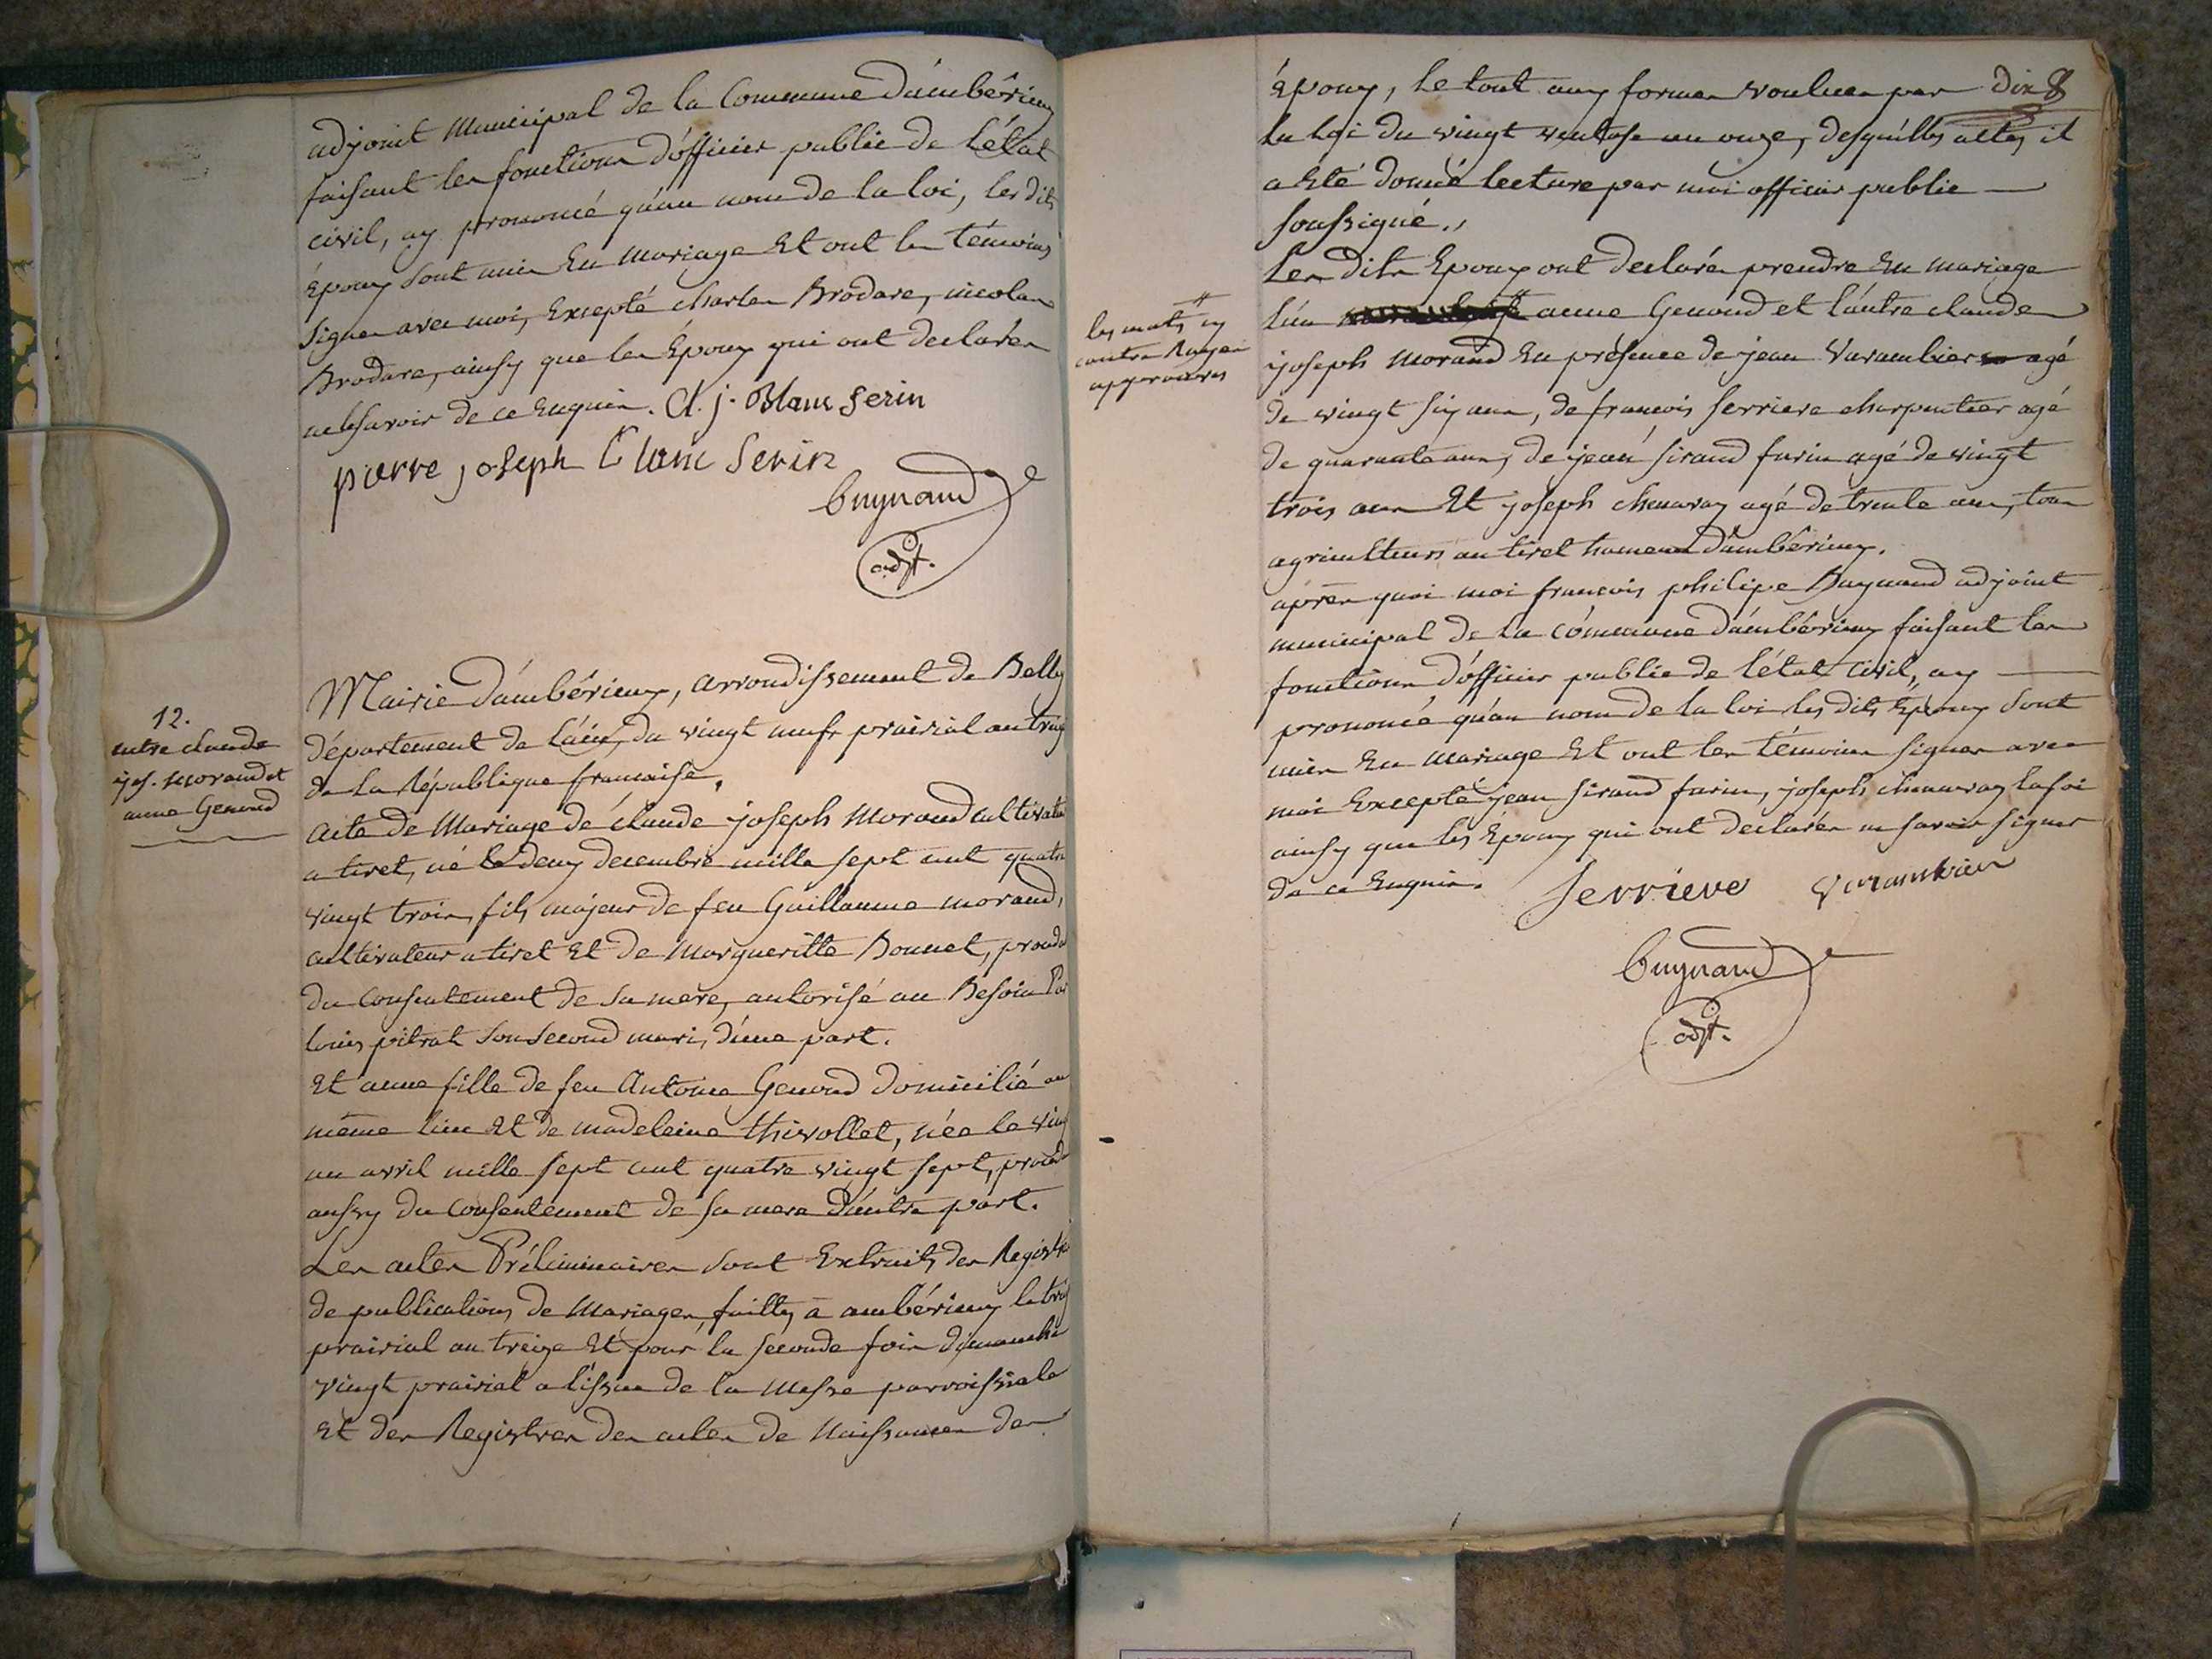 adjoint Municipal de la Commune D'ambérieux
faisant les fonctions d'officier public de L'état
civil, ay prononcé qu'au nom de la loi, les dits
Époux sont unis En mariage Et ont les témoins
Signer avec moi, Excepté charles Brodare, nicolas
Brodare, ainsy que les Époux qui ont declarer
ne savoir de ce Enquis. Cl. j. Blanc Serin
pierre joseph Blanc Serin
Buynand
adjt.
12.
entre claude
jos. morand et
anne Genoud
Mairie d'ambérieux, arrondissement de Belley
département de L'ain, du vingt neuf prairial an treize
de la République francaise,
acte de Mariage de claude joseph Morand cultivateur
a tiret, né le deux decembre mille sept cent quatre
vingt trois, fils majeur de feu Guillaume morand,
cultivateur a tiret Et de Margueritte Bonnet, procedant
du consentement de sa mere, autorisé au Besoin Par
louis pitrat son second mari, d'une part.
Et anne fille de feu Antoine Genoud domicilié au
même lieu Et de madeleine thivollet, née le vingt
un avril mille sept cent quatre vingt sept, procedant
aussy du consentement de sa mere d'autre part.
Les actes Préliminaires sont Extraits des Registres
de publications de Mariages, faittes à ambérieux le treize
prairial an treize Et pour la seconde fois dimanche
vingt prairial a l'issue de la Messe parroissiale
Et des Registres des actes de Naissances des
Époux, Le tout aux formes voulues par dix 8
la Loi du vingt ventose an onze, desquelles actes il
a Eté donné lecture par moi officier public
soussigné.,
Les dits Epoux ont declarés prendre En mariage
l'un anne Genoud et l'autre claude
les mots cy
contre Rayer
approuvés
joseph Morand En présence de jean Varambier agé
de vingt six ans, de francois serriere charpentier agé
de quarante ans, de jean sirand furin agé de vingt
trois ans Et joseph chenavaz agé de trente ans, tous
agriculteurs au tiret hameau d'ambérieux.
après quoi moi francois philipe Buynand adjoint
municipal de la cómmune d'ambérieux faisant les
fonctions d'officier public de l'état civil, ay
prononcé qu'au nom de la loi les dits Époux sont
unis En mariage Et ont les témoins signer avec
moi Excepté jean sirand furin, joseph chenavaz
ainsy que les Époux qui ont declarés ne savoir signer
de ce Enquis. serriere varambier
Buynand
adjt.